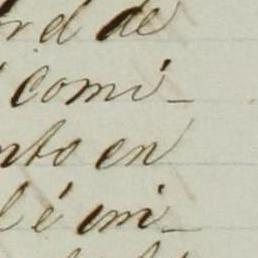 rd de
comi-
nto en
l é imi-